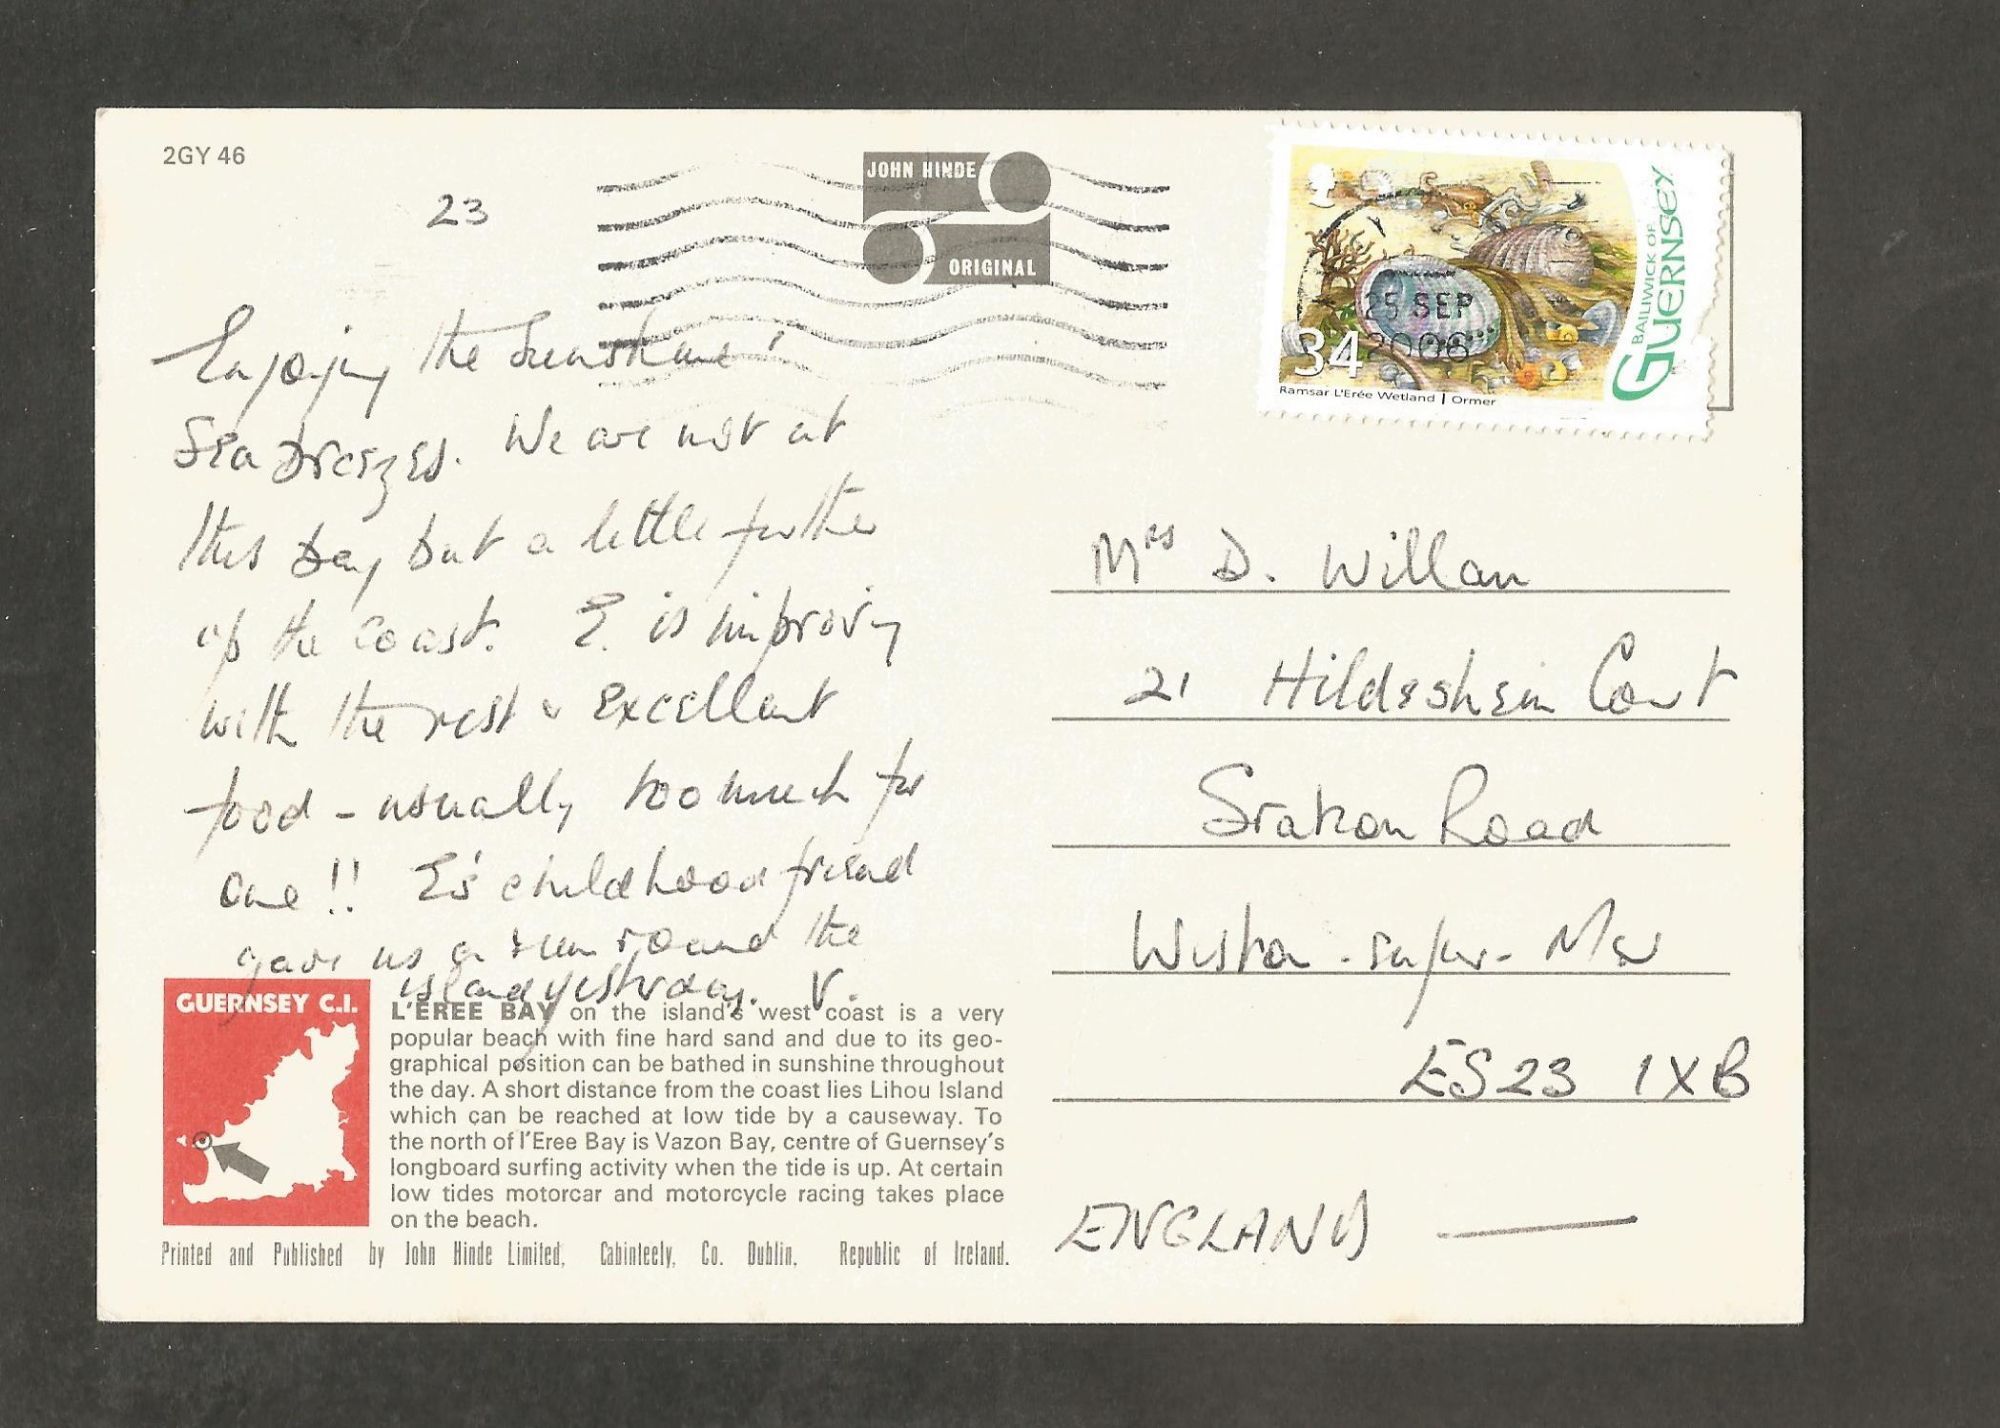 2GY 46
23
JOHN HINDE
ORIGINAL
25 SEP
2006
34
BAILIWICK OF
GUERNSEY
Ramsar L'Erée Wetland | Ormer
Enjoying the Sunshine &
Sea Breezes. We are not at
this Bay but a little further
up the coast. E. is improving
with the rest & Excellent
food - usually too much for
one !! E's childhood friend
gave us a run round the
island yesterday. V.
Mrs D. Willan
21 Hildeshein Court
Road
Weston-super-Mare
ES23 1XB
ENGLAND
GUERNSEY C.I.
L'EREE BAY on the island's west coast is a very
popular beach with fine hard sand and due to its geo-
graphical position can be bathed in sunshine throughout
the day. A short distance from the coast lies Lihou Island
which can be reached at low tide by a causeway. To
the north of l'Eree Bay is Vazon Bay, centre of Guernsey's
longboard surfing activity when the tide is up. At certain
low tides motorcar and motorcycle racing takes place
on the beach.
Printed and Published by John Hinde Limited, Cabinteely, Co. Dublin, Republic of Ireland.